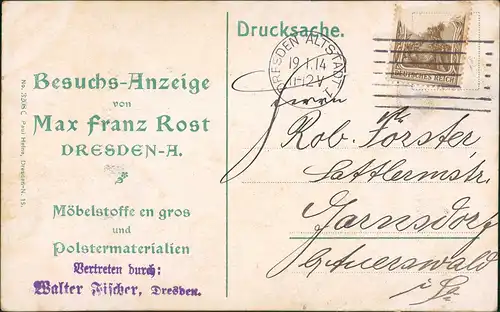 Drucksache.
DRESDEN ALTSTADT
19.1.14
11-12 V
DEUTSCHES REICH
Besuchs-Anzeige
von
Max Franz Rost
DRESDEN-A.
Möbelstoffe en gros
und
Polstermaterialien
Vertreten durch:
Walter Fischer, Dresden.
Paul Heine, Dresden-N. 15.
Herrn
Rob. Förster
Sattlermstr.
Garnsdorf
b/Auerswald
i/Sa.